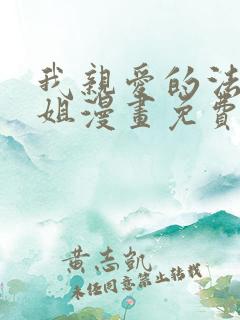 我親愛的法
姐漫畫免費
黃志凱
未任同意禁止轉載